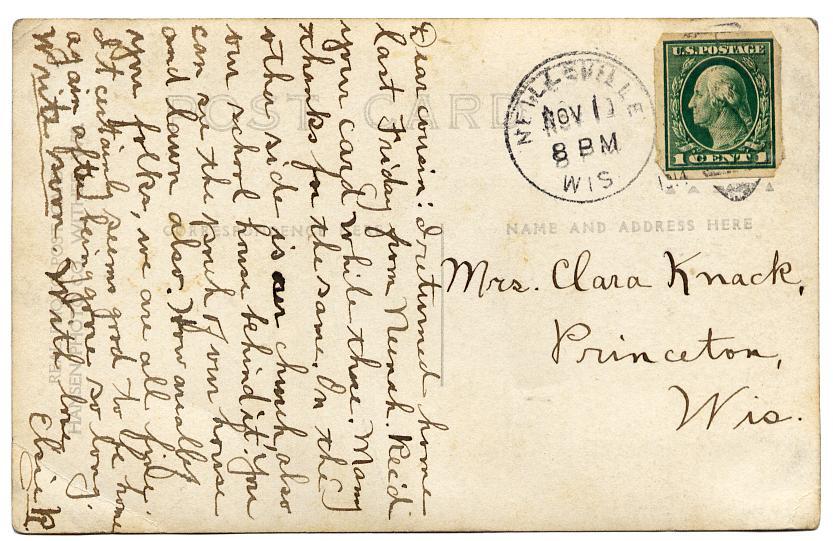 POST CARD
NEILLSVILLE
NOV 1
8 PM
WIS
U.S. POSTAGE
1 CENT 1
CORRESPONDENCE HERE
NAME AND ADDRESS HERE
Mrs. Clara Knack,
Princeton,
Wis.
Dear cousin: I returned home
last Friday from Neenah. Rec'd
your card while there. Many
thanks for the same. On the
other side is our church, also
our school house behind it. You
can see the porch of our house
and lawn also. How are all
your folks, we are all fine.
It certainly seems good to be home
again after being gone so long.
Write soon With love
Elsie R.